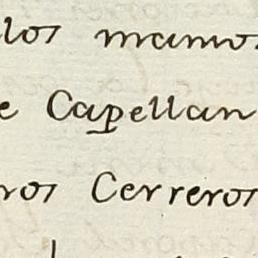 los mamos
e Capellan
ros Cerreros